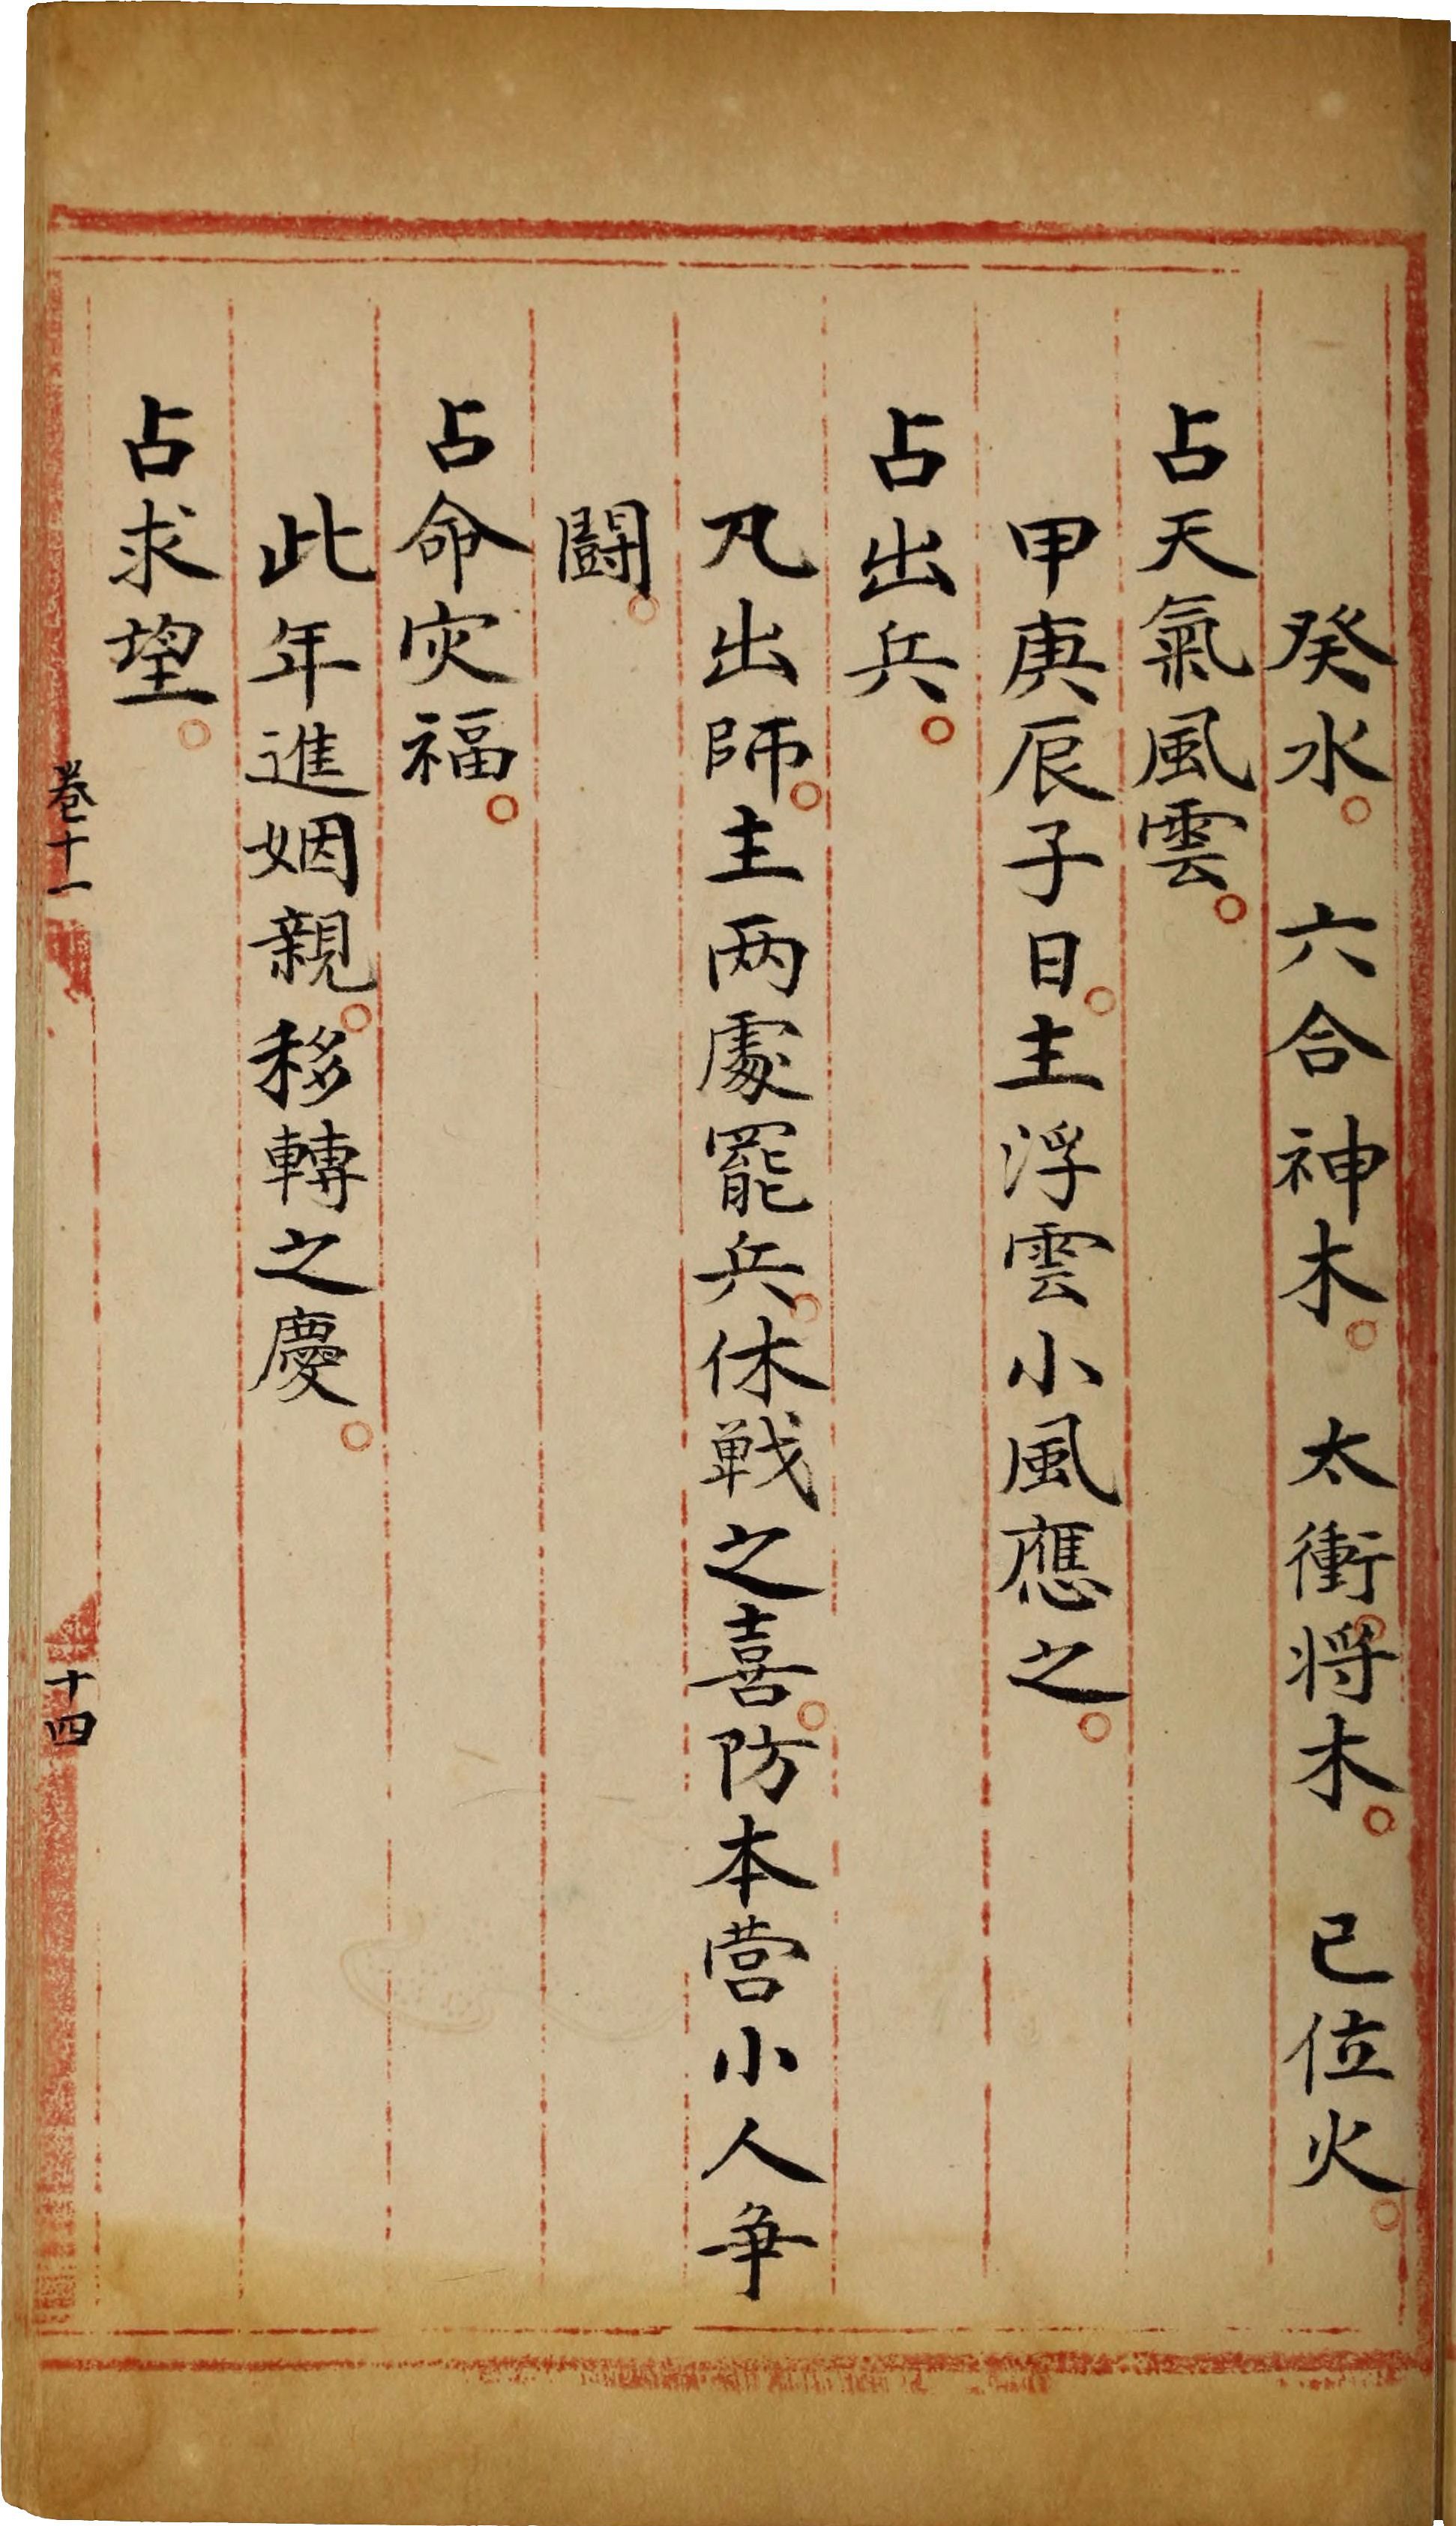 癸水。 六合神木。 太衝。将木。 已位火。
占天氣風雲。
甲庚辰子日。主浮雲小風應之。
占出兵。
凡出師。主两處罷兵。休戦之喜。防本营小人争
闘。
占命灾福。
此年進姻親。移轉之慶。
占求望。
卷十一
十四